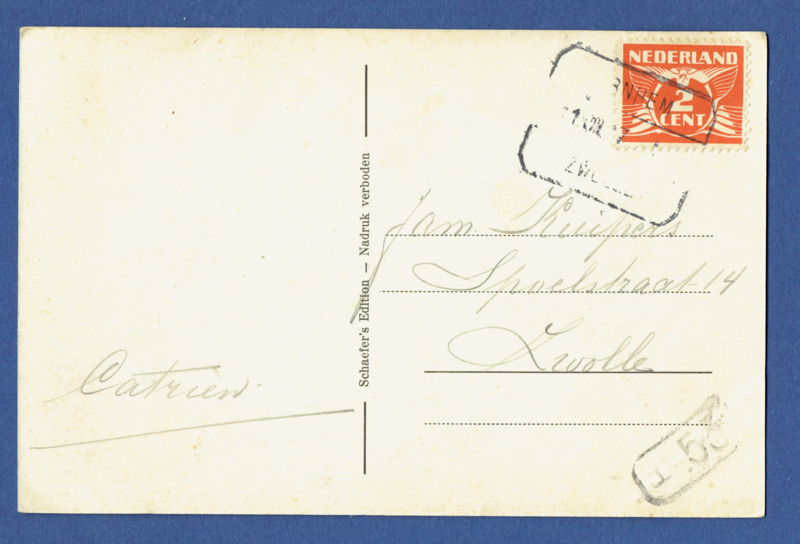 NEDERLAND
2
CENT
Schaefer's Edition — Nadruk verboden
Kuipers
Spoelstraat 14
Zwolle
Catrien